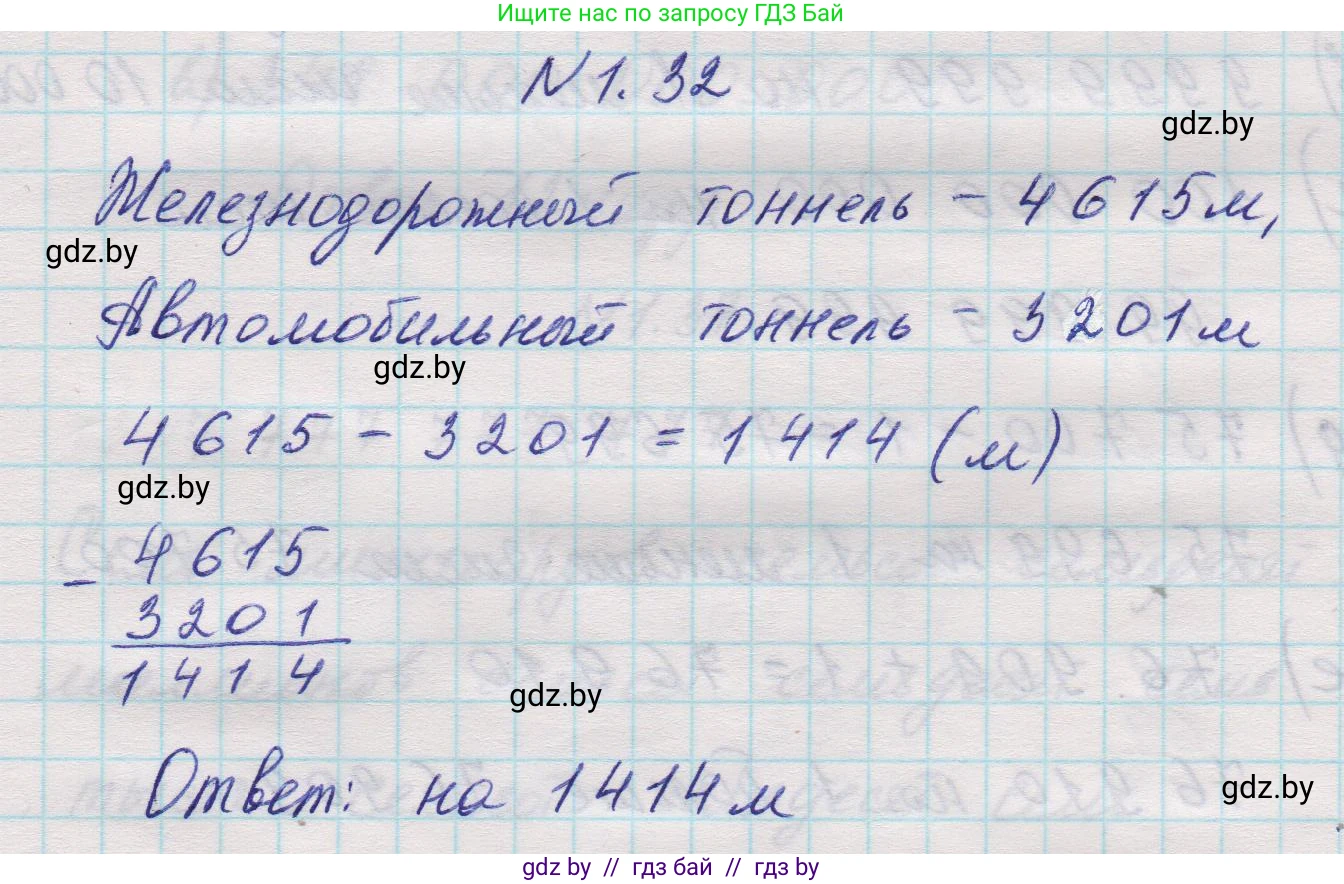 Ищите нас по запросу ГДЗ Бай
N 1. 32
gdz.by
Железнодорожный тоннель - 4615м,
gdz.by
Автомобильный тоннель - 3201м
gdz.by
4615 - 3201 = 1414 (м)
gdz.by
- 4615
3201
1414
gdz.by
Ответ: на 1414м
gdz.by
gdz by // гдз бай // гдз by